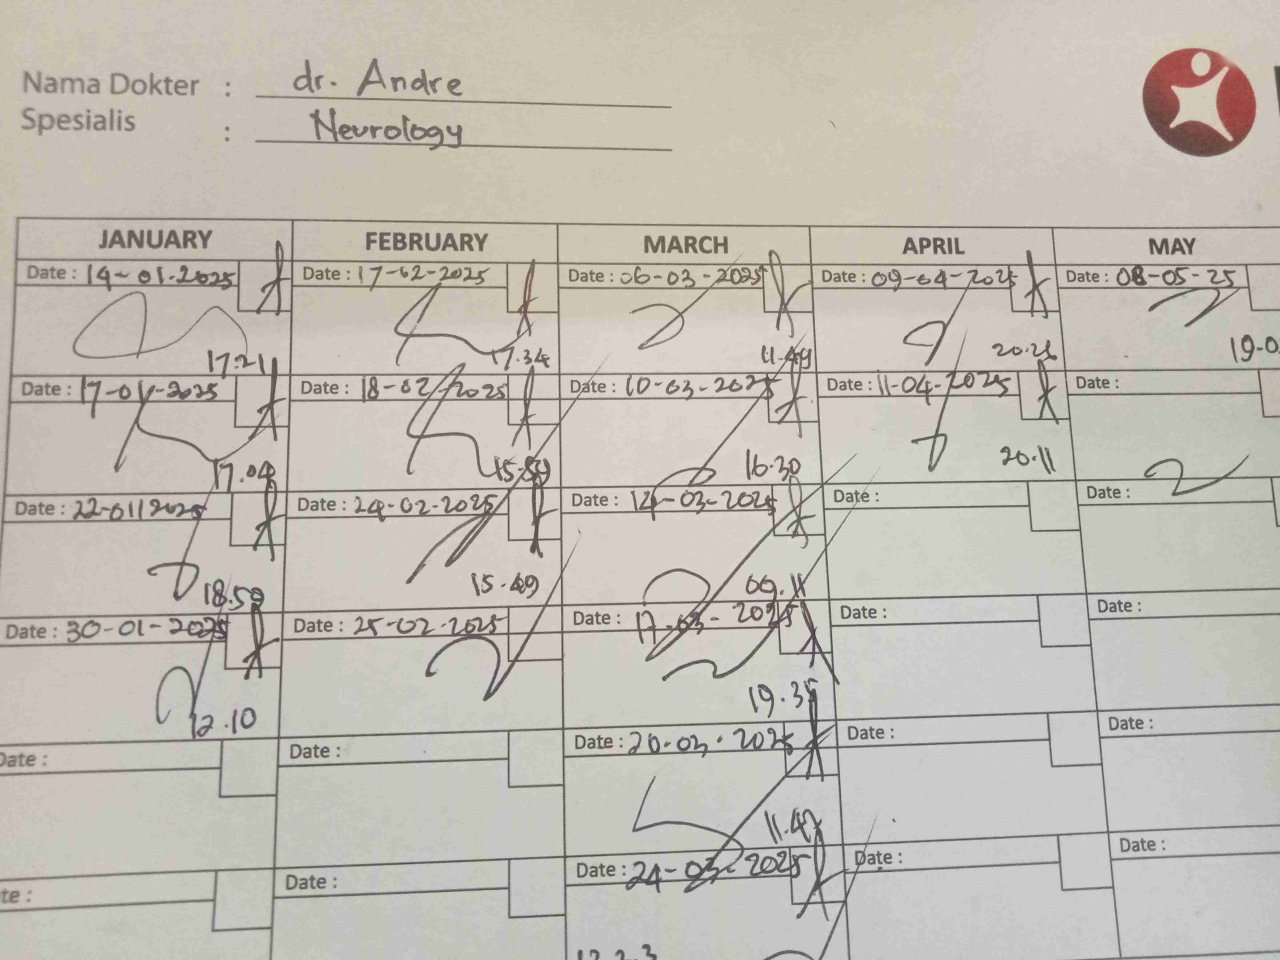 Nama Dokter : dr. Andre
Spesialis : Neurology
JANUARY FEBRUARY MARCH APRIL MAY
Date : 14-01-2025 Date : 17-02-2025 Date : 06-03-2025 Date : 09-04-2025 Date : 08-05-25
17.21 17.34 11.49 20.26 19.0
Date : 17-01-2025 Date : 18-02-2025 Date : 10-03-2025 Date : 11-04-2025 Date :
17.04 15.59 16.30 20.11
Date : 22-01-2025 Date : 24-02-2025 Date : 14-03-2025 Date : Date :
18.50 15.49 09.11
Date : 30-01-2025 Date : 25-02-2025 Date : 17-03-2025 Date : Date :
12.10 19.35
Date : Date : Date : 20-03-2025 Date : Date :
11.47
te : Date : Date : 24-03-2025 Date : Date :